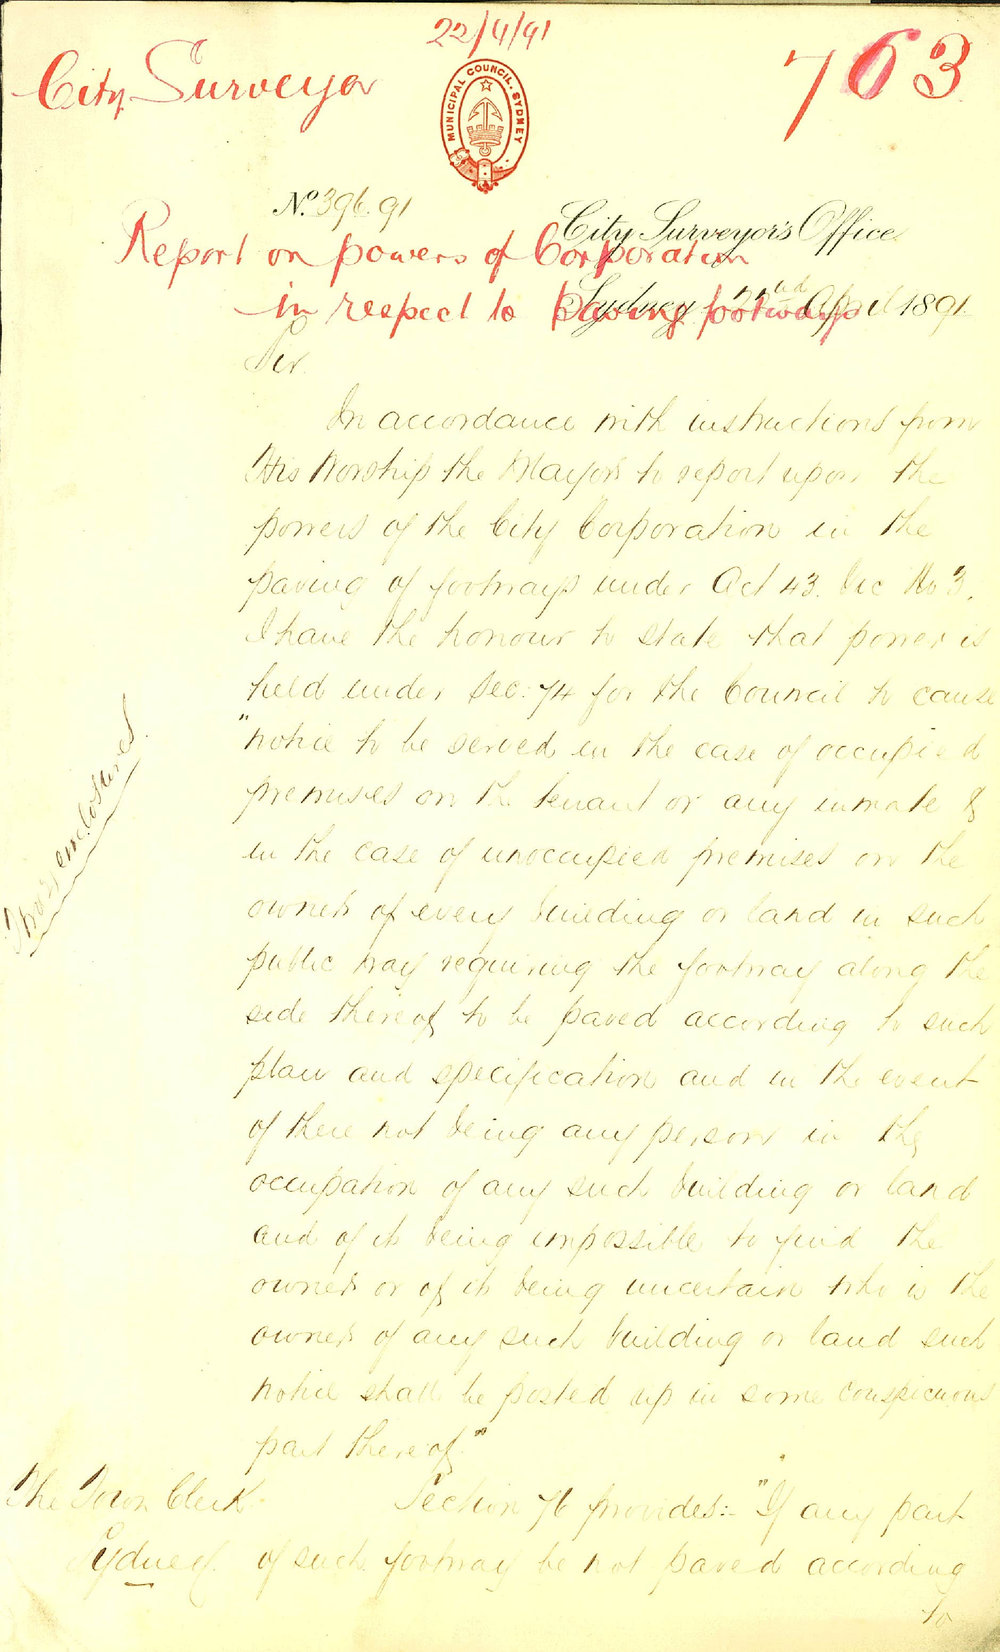 22/4/91
City Surveyor
763
MUNICIPAL COUNCIL. SYDNEY
No. 396.91
City Surveyor's Office
Report on powers of Corporation
Sydney 22nd April 1891.
in respect to paving footways
Sir.
In accordance with instructions from
His Worship the Mayor to report upon the
powers of the City Corporation in the
paving of footways under Act 43. Vic No 3.
I have the honour to state that power is
held under Sec: 74 for the Council to cause
"notice to be served in the case of occupied
premises on the tenant or any inmate &
in the case of unoccupied premises on the
owner of every building or land in such
public way requiring the footway along the
side thereof to be paved according to such
plan and specification and in the event
of there not being any person in the
occupation of any such building or land
and of it being impossible to find the
owner or of it being uncertain who is the
owner of any such building or land such
notice shall be posted up in some conspicuous
part thereof."
enclosures.
The Town Clerk
Sydney.
Section 76 provides:- "If any part
of such footway be not paved according
to